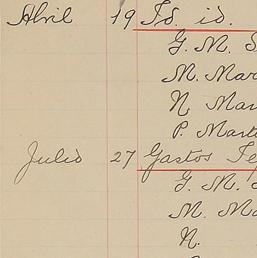 Abril 19 Id. id.
G. M. S
M. Mar
N. Mar
P. Marti
Julio 27 Gastos Te
G. M. S
M. Ma
N.